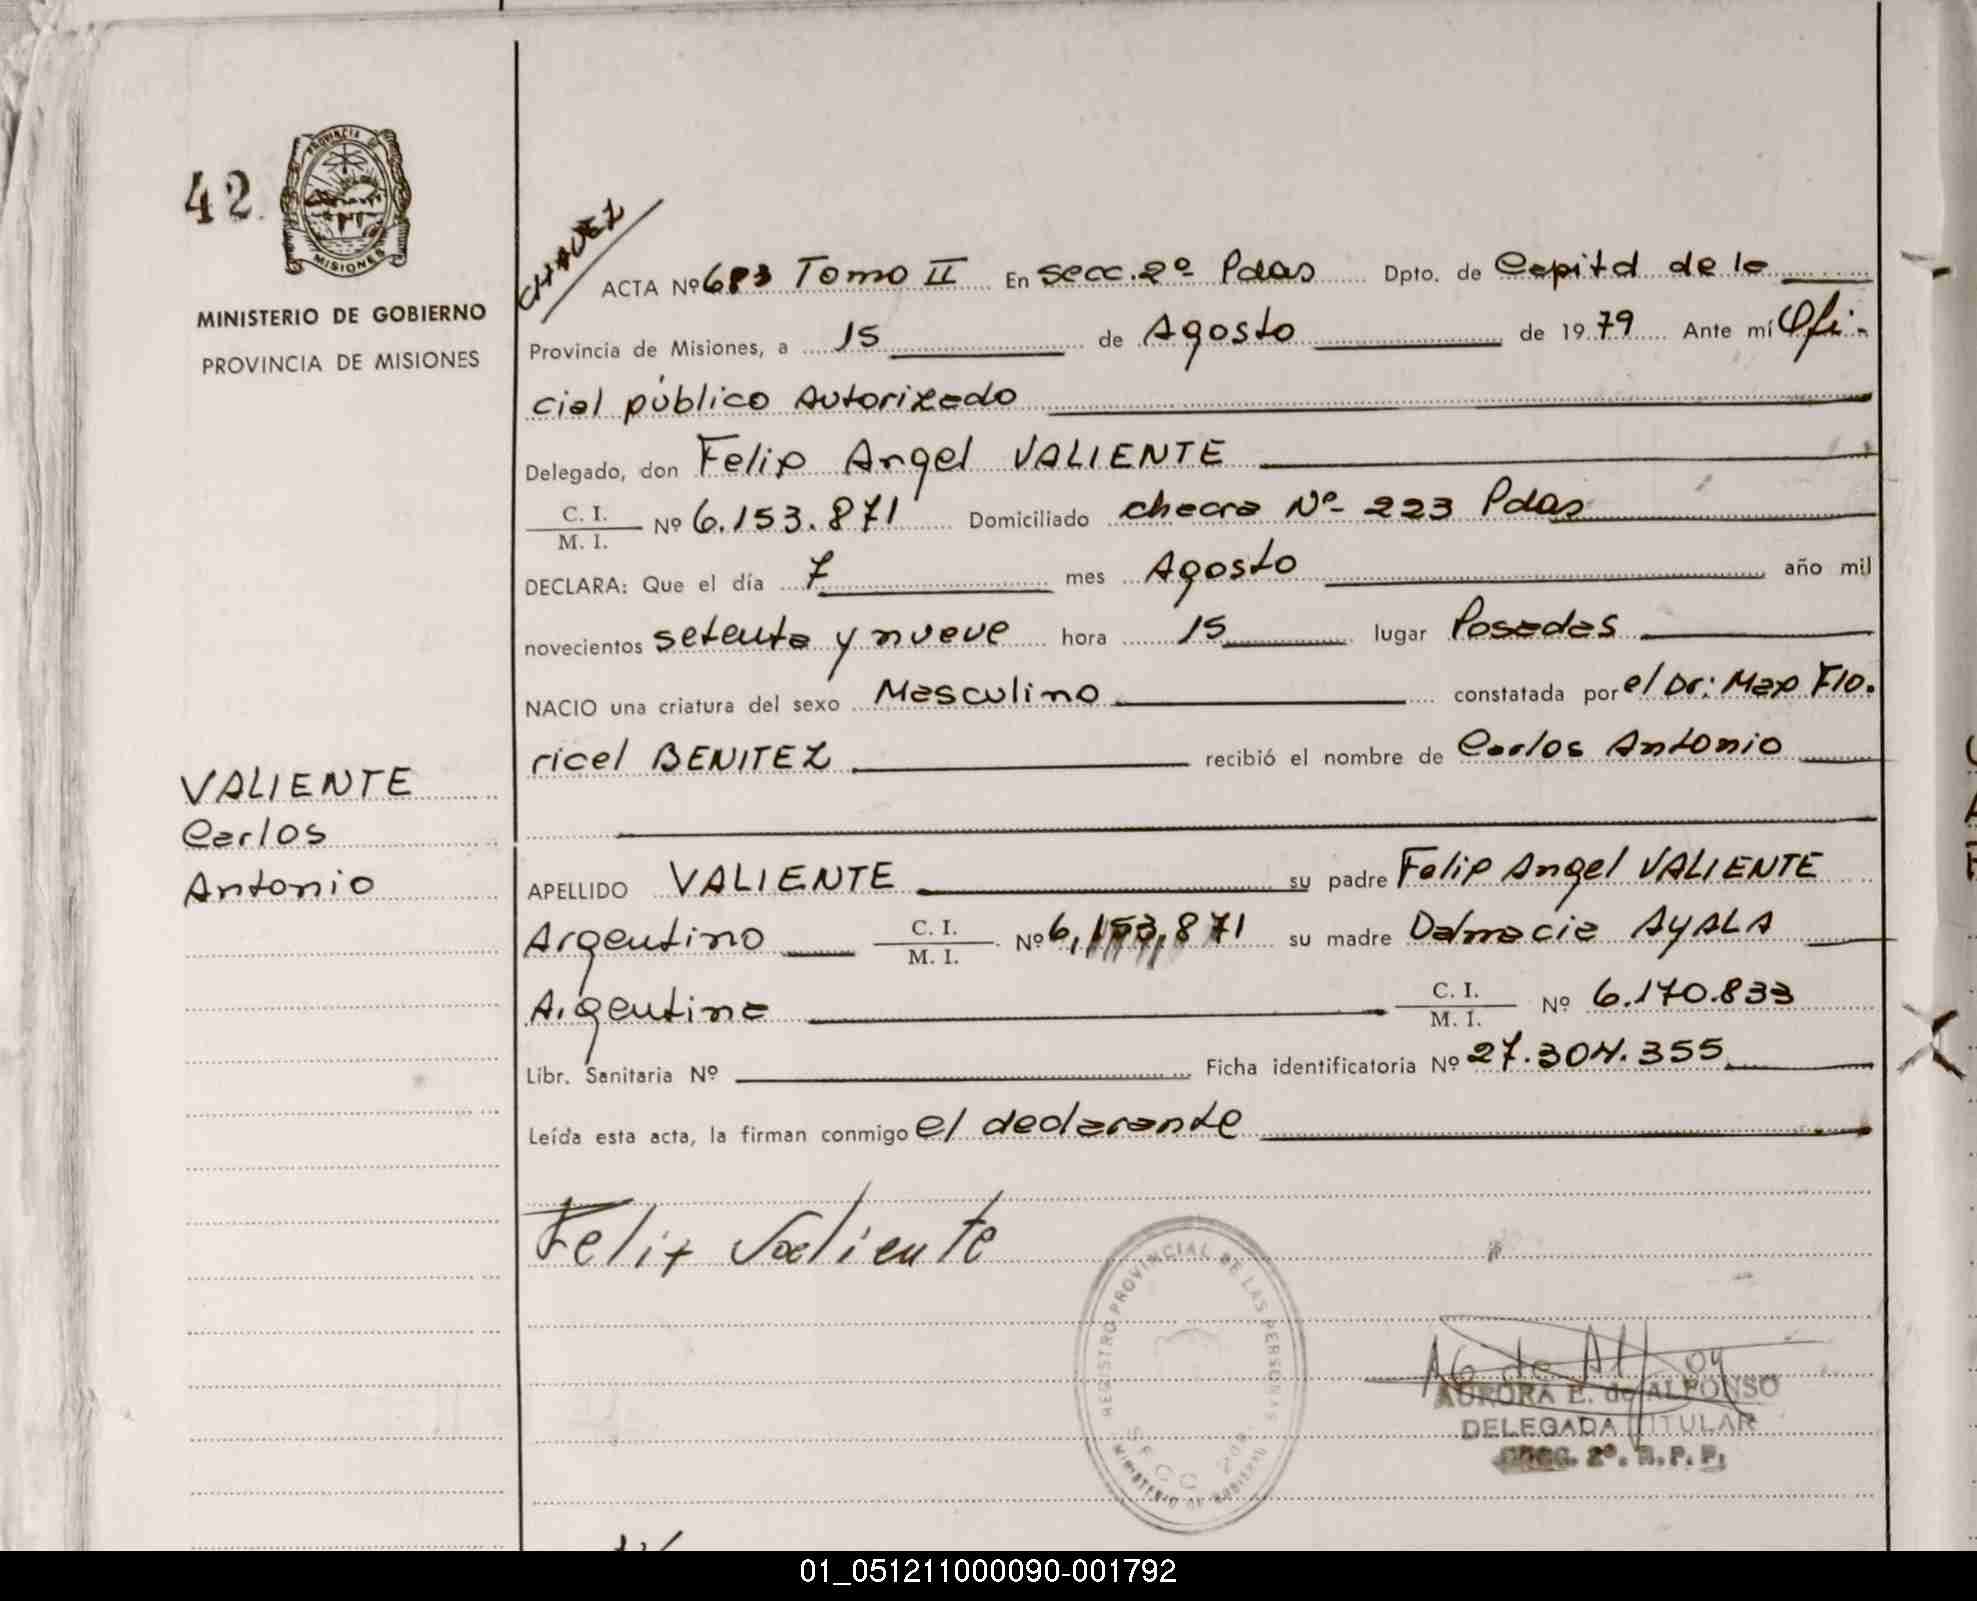 42
PROVINCIA DE
MISIONES
MINISTERIO DE GOBIERNO
PROVINCIA DE MISIONES
VALIENTE
Carlos
Antonio
CHAVEZ
ACTA Nº 683 Tomo II En secc. 2º Pdas Dpto. de Capital de la
Provincia de Misiones, a 15 de Agosto de 1979 Ante mí Ofi-
cial público Autorizado
Delegado, don Felix Angel VALIENTE
C. I.
M. I. Nº 6.153.871 Domiciliado chacra Nº- 223 Pdas
DECLARA: Que el día 7 mes Agosto año mil
novecientos setenta y nueve hora 15 lugar Posadas
NACIO una criatura del sexo Masculino constatada por el Dr: Max Flo.
ricel BENITEZ recibió el nombre de Carlos Antonio
APELLIDO VALIENTE su padre Felix Angel VALIENTE
Argentino C. I.
M. I. Nº 6,153,871 su madre Dalmacia AYALA
Argentina C. I.
M. I. Nº 6.170.833
Libr. Sanitaria Nº Ficha identificatoria Nº 27.304.355
Leída esta acta, la firman conmigo el declarante
Felix Valiente
REGISTRO PROVINCIAL DE LAS PERSONAS
MINISTERIO DE GOBIERNO
AURORA E. de ALFONSO
DELEGADA TITULAR
SECC. 2º. R. P. P.
01_051211000090-001792